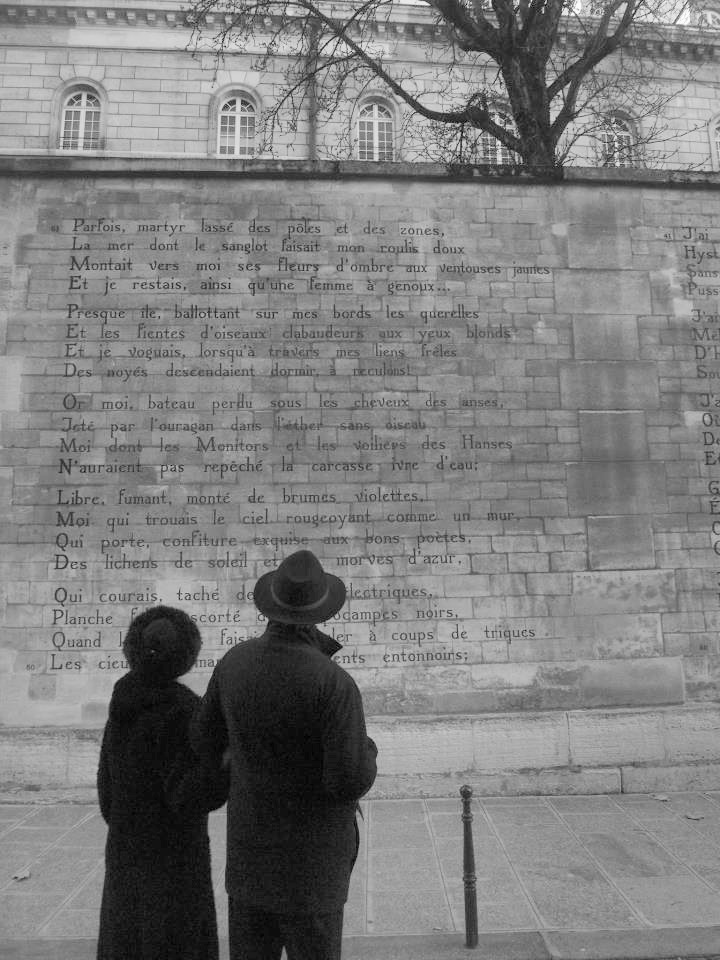 61 Parfois, martyr lassé des pôles et des zones,
La mer dont le sanglot faisait mon roulis doux
Montait vers moi ses fleurs d'ombre aux ventouses jaunes
Et je restais, ainsi qu'une femme à genoux...
Presque île, ballottant sur mes bords les querelles
Et les fientes d'oiseaux clabaudeurs aux yeux blonds
Et je voguais, lorsqu'à travers mes liens frêles
Des noyés descendaient dormir, à reculons!
Or moi, bateau perdu sous les cheveux des anses,
Jeté par l'ouragan dans l'éther sans oiseau
Moi dont les Monitors et les voiliers des Hanses
N'auraient pas repêché la carcasse ivre d'eau;
Libre, fumant, monté de brumes violettes,
Moi qui trouais le ciel rougeoyant comme un mur,
Qui porte, confiture exquise aux bons poètes,
Des lichens de soleil et morves d'azur,
Qui courais, taché de électriques,
Planche f scorté d pocampes noirs,
Quand l faisai ler à coups de triques
80 Les cieu mar ents entonnoirs;
41 J'ai
Hyst
Sans
Puss
J'ai
D'I
Sou
J'a
Où
De
Et
G